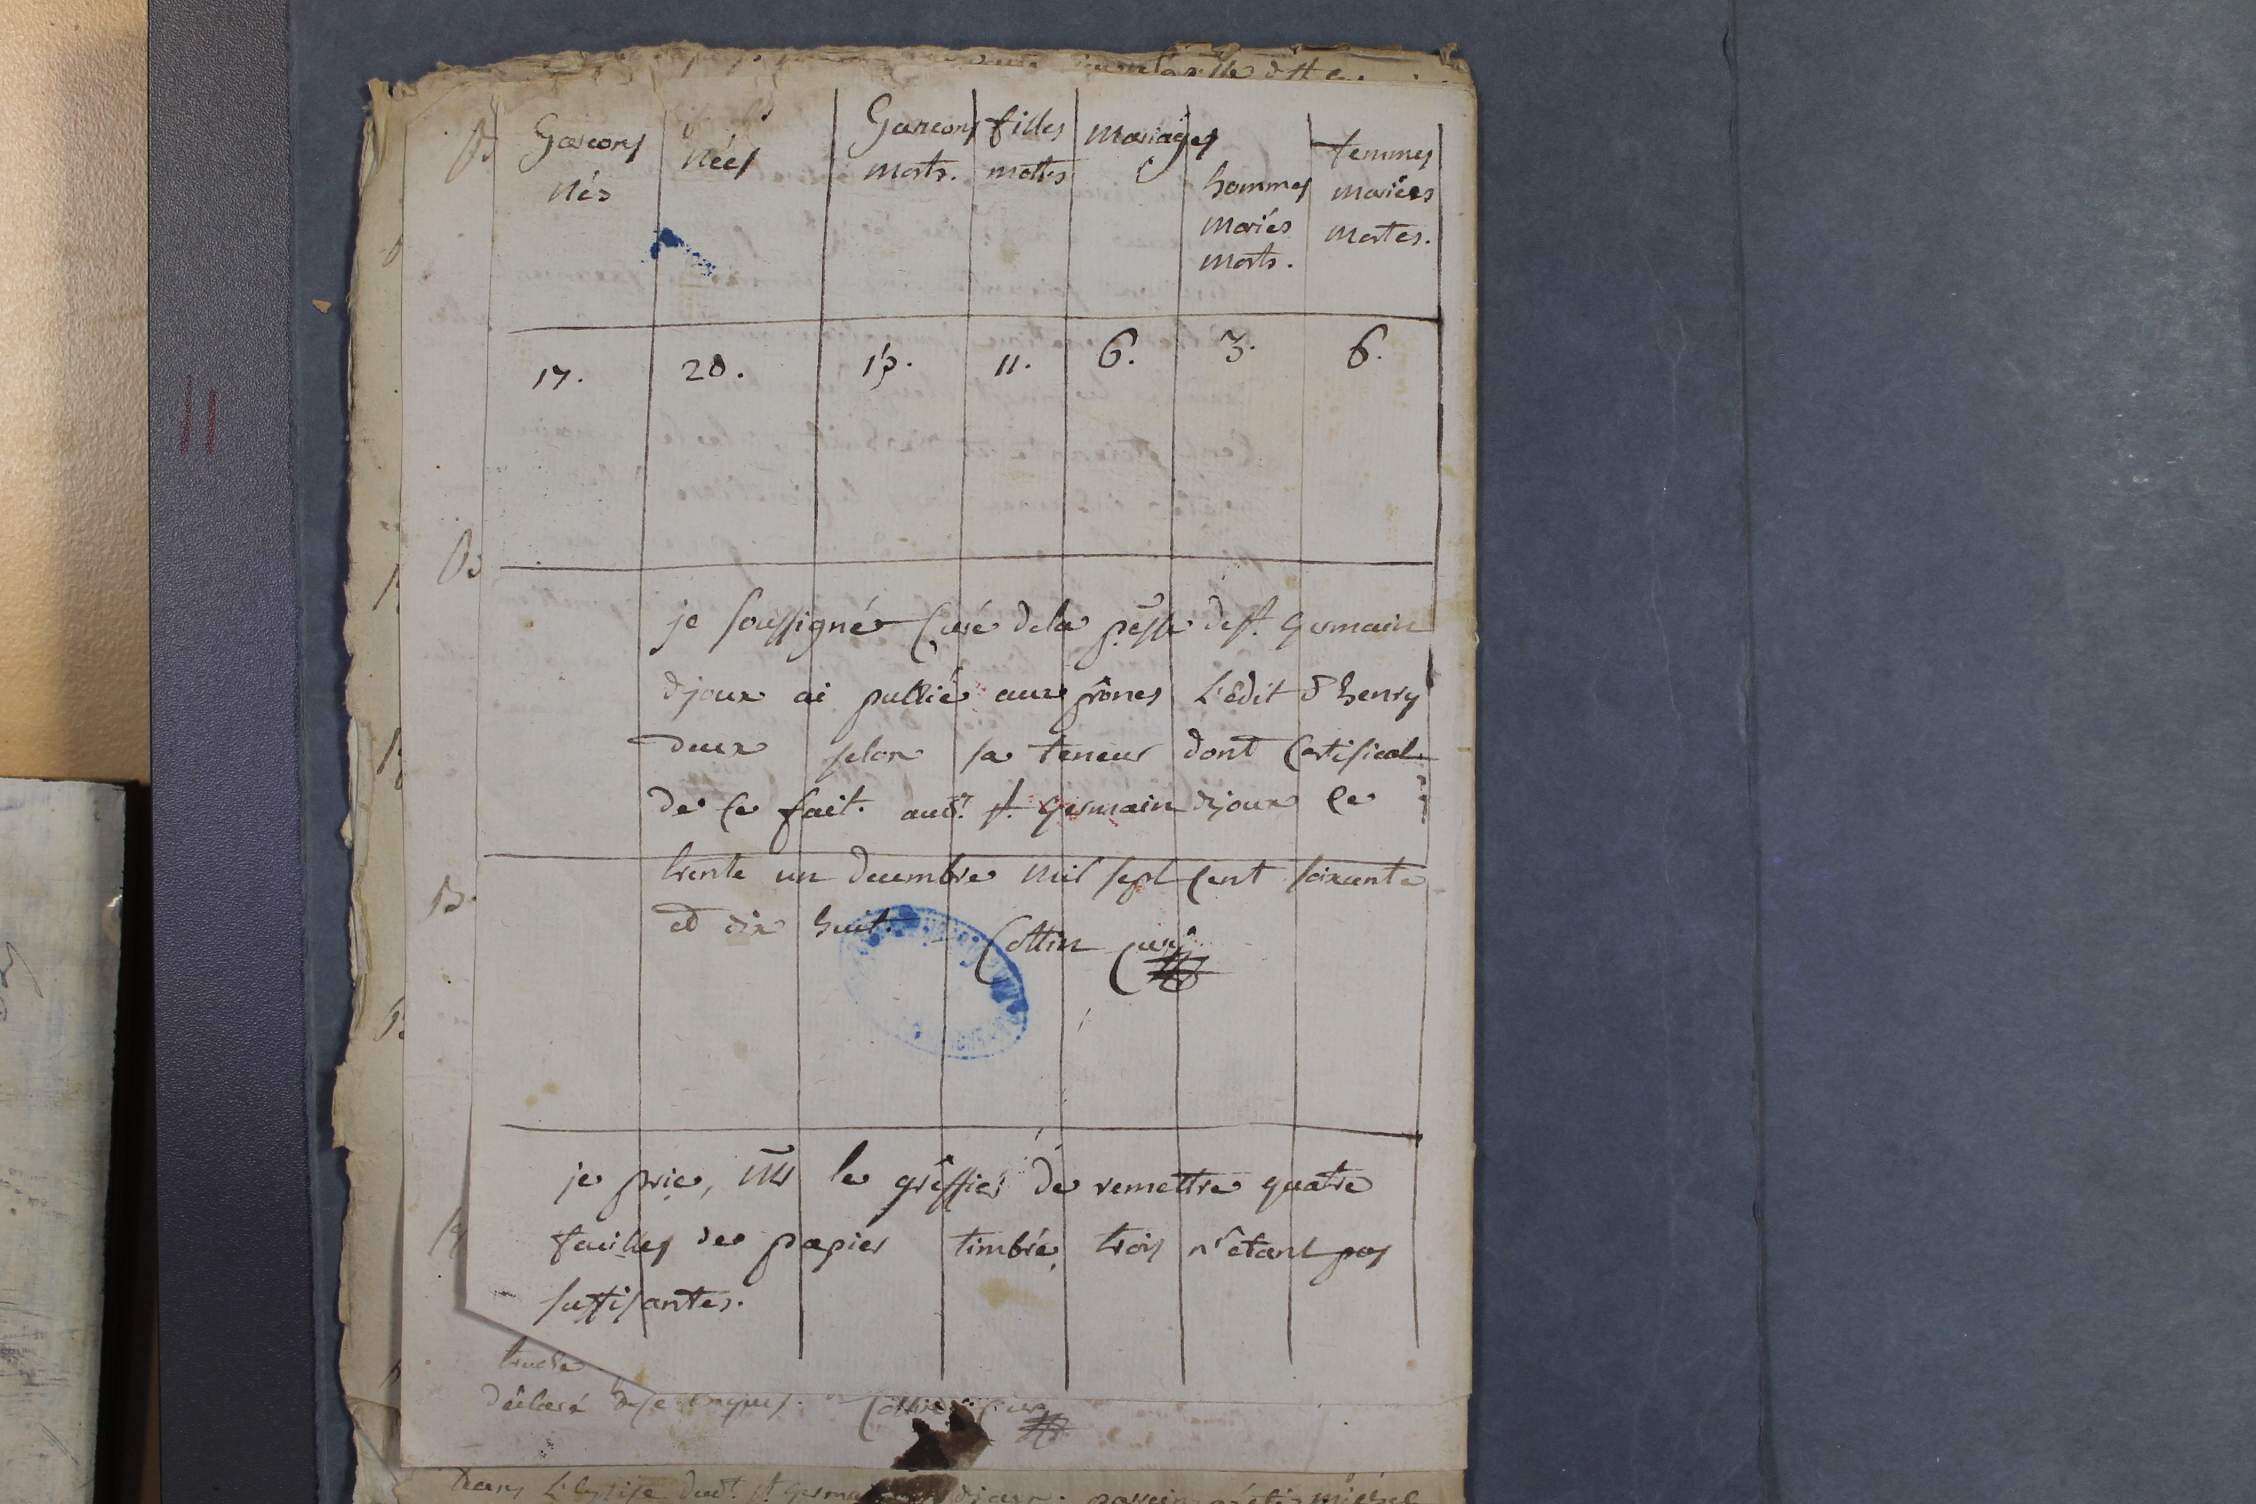 Garcons nés
filles nées
Garcons morts.
filles mortes
Mariages
hommes mariés morts.
femmes mariées mortes.
17. 20. 15. 11. 6. 3. 6.
je soussigné Curé dela psse de st. Germain
djoux ai publié aux prônes L'Edit d'henry
deux selon sa teneur dont Certificat
de Ce fait. aud. st. Germain djoux Ce
trente un decembre mil sept Cent soixante
et dix huit. Cottin Curé
je prie, Mr le grêffier de remettre quatre
fueilles de papier timbré, trois n'êtant pas
suffisantes.
déclaré de ce enquis. Cottin Curé